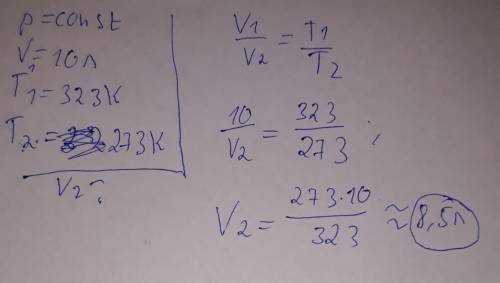 p=const
V₁=10л
T₁=323K
T₂.=273K
V₂-?
V₁/V₂=T₁/T₂
10/V₂=323/273;
V₂=273·10/323≈8,5л